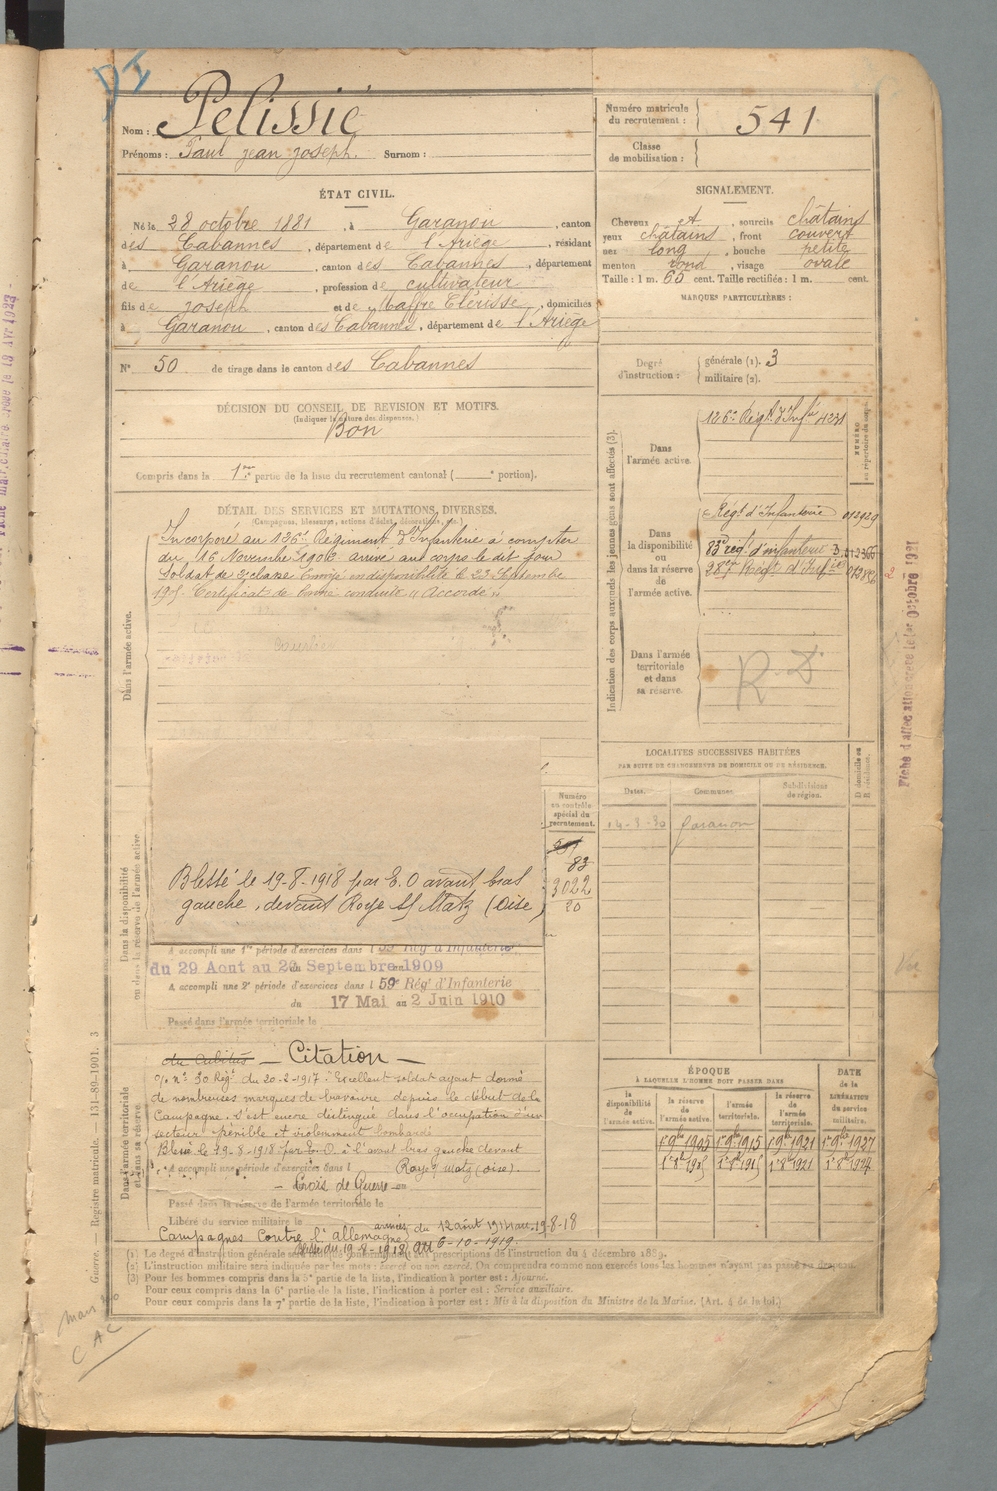 Nom : Pélissié
Prénoms : Paul jean joseph. Surnom :
Numéro matricule du recrutement : 541
Classe de mobilisation :
ÉTAT CIVIL.
Né le 28 octobre 1881, à Garanou, canton
des Cabannes, département de l'Ariège, résidant
à Garanou, canton des Cabannes, département
de l'Ariège, profession de cultivateur
fils de joseph et de Maffre Elérisse, domiciliés
à Garanou, canton des Cabannes, département de l'Ariège
N° 50 de tirage dans le canton des Cabannes
SIGNALEMENT.
Cheveux et, sourcils châtains
yeux châtains, front couvert
nez long, bouche petite
menton rond, visage ovale
Taille : 1 m. 63 cent. Taille rectifiée : 1 m. cent.
MARQUES PARTICULIÈRES :
Degré d'instruction : générale (1). 3
militaire (2).
DÉCISION DU CONSEIL DE REVISION ET MOTIFS.
(Indiquer la nature des dispenses.)
Bon
Compris dans la 1re partie de la liste du recrutement cantonal ( e portion).
DÉTAIL DES SERVICES ET MUTATIONS DIVERSES.
(Campagnes, blessures, actions d'éclat, décorations, etc.)
Dans l'armée active.
Incorporé au 126e Régiment d'Infanterie à compter
du 16 Novembre 1902 arrivé au corps le dit jour
Soldat de 2e classe Envoyé en disponibilité le 23 Septembre
190 Certificat de bonne conduite "Accordé".
Indication des corps auxquels les jeunes gens sont affectés (3).
NUMÉRO au répertoire du corps.
Dans l'armée active.
126e Régt d'Infie 4231
Dans la disponibilité ou dans la réserve de l'armée active.
Régt d'Infanterie 012929
83e régt d'infanterie 3.012366
287 Régt d'Infie
Dans l'armée territoriale et dans sa réserve.
R.D.
Fiche d'affectation créée le 1er Octobre 1921
LOCALITÉS SUCCESSIVES HABITÉES
PAR SUITE DE CHANGEMENTS DE DOMICILE OU DE RÉSIDENCE.
Dates. Communes. Subdivisions de région. D domicile ou R résidence.
14-3-30 Garanou
Dans la disponibilité ou dans la réserve de l'armée active
Numéro au contrôle spécial du recrutement.
83
3022
20
Blessé le 19-8-1918 par E.O avant bras
gauche, devant Roye s/ Matz (Oise)
A accompli une 1re période d'exercices dans l 59 Rég d'Infanterie
du 29 Aout au 20 Septembre 1909
A accompli une 2e période d'exercices dans l 59e Régt d'Infanterie
du 17 Mai au 2 Juin 1910
Passé dans l'armée territoriale le
Dans l'armée territoriale et dans sa réserve
du cubitus — Citation —
o/. n° 30 Régt du 20-2-1917 : Excellent soldat ayant donné
de nombreuses marques de bravoure depuis le début de la
Campagne. S'est encore distingué dans l'occupation d'un
secteur pénible et violemment bombardé
Blessé le 19-8-1918 par E.O. à l'avant bras gauche devant
A accompli une période d'exercices dans l Roye s/ Matz (Oise).
— Croix de Guerre —
Passé dans la réserve de l'armée territoriale le
Libéré du service militaire le
Campagnes Contre l'allemagne armées du 12 août 1914 au 19-8-18
blessé du 19-8-1918 au 6-10-1919.
ÉPOQUE
À LAQUELLE L'HOMME DOIT PASSER DANS
DATE de la LIBÉRATION du service militaire.
la disponibilité de l'armée active. la réserve de l'armée active. l'armée territoriale. la réserve de l'armée territoriale.
1er 9bre 1905 1er 9bre 1915 1er 9bre 1921 1er 9bre 1927
1er 8bre 1905 1er 8bre 1915 1er 8bre 1921 1er 8bre 1927
(1) Le degré d'instruction générale sera indiqué conformément aux prescriptions de l'instruction du 4 décembre 1889.
(2) L'instruction militaire sera indiquée par les mots : exercé ou non exercé. On comprendra comme non exercés tous les hommes n'ayant pas passé au drapeau.
(3) Pour les hommes compris dans la 5e partie de la liste, l'indication à porter est : Ajourné.
Pour ceux compris dans la 6e partie de la liste, l'indication à porter est : Service auxiliaire.
Pour ceux compris dans la 7e partie de la liste, l'indication à porter est : Mis à la disposition du Ministre de la Marine. (Art. 4 de la loi.)
Guerre. — Registre matricule. — 131-89-1901. 3
CAC